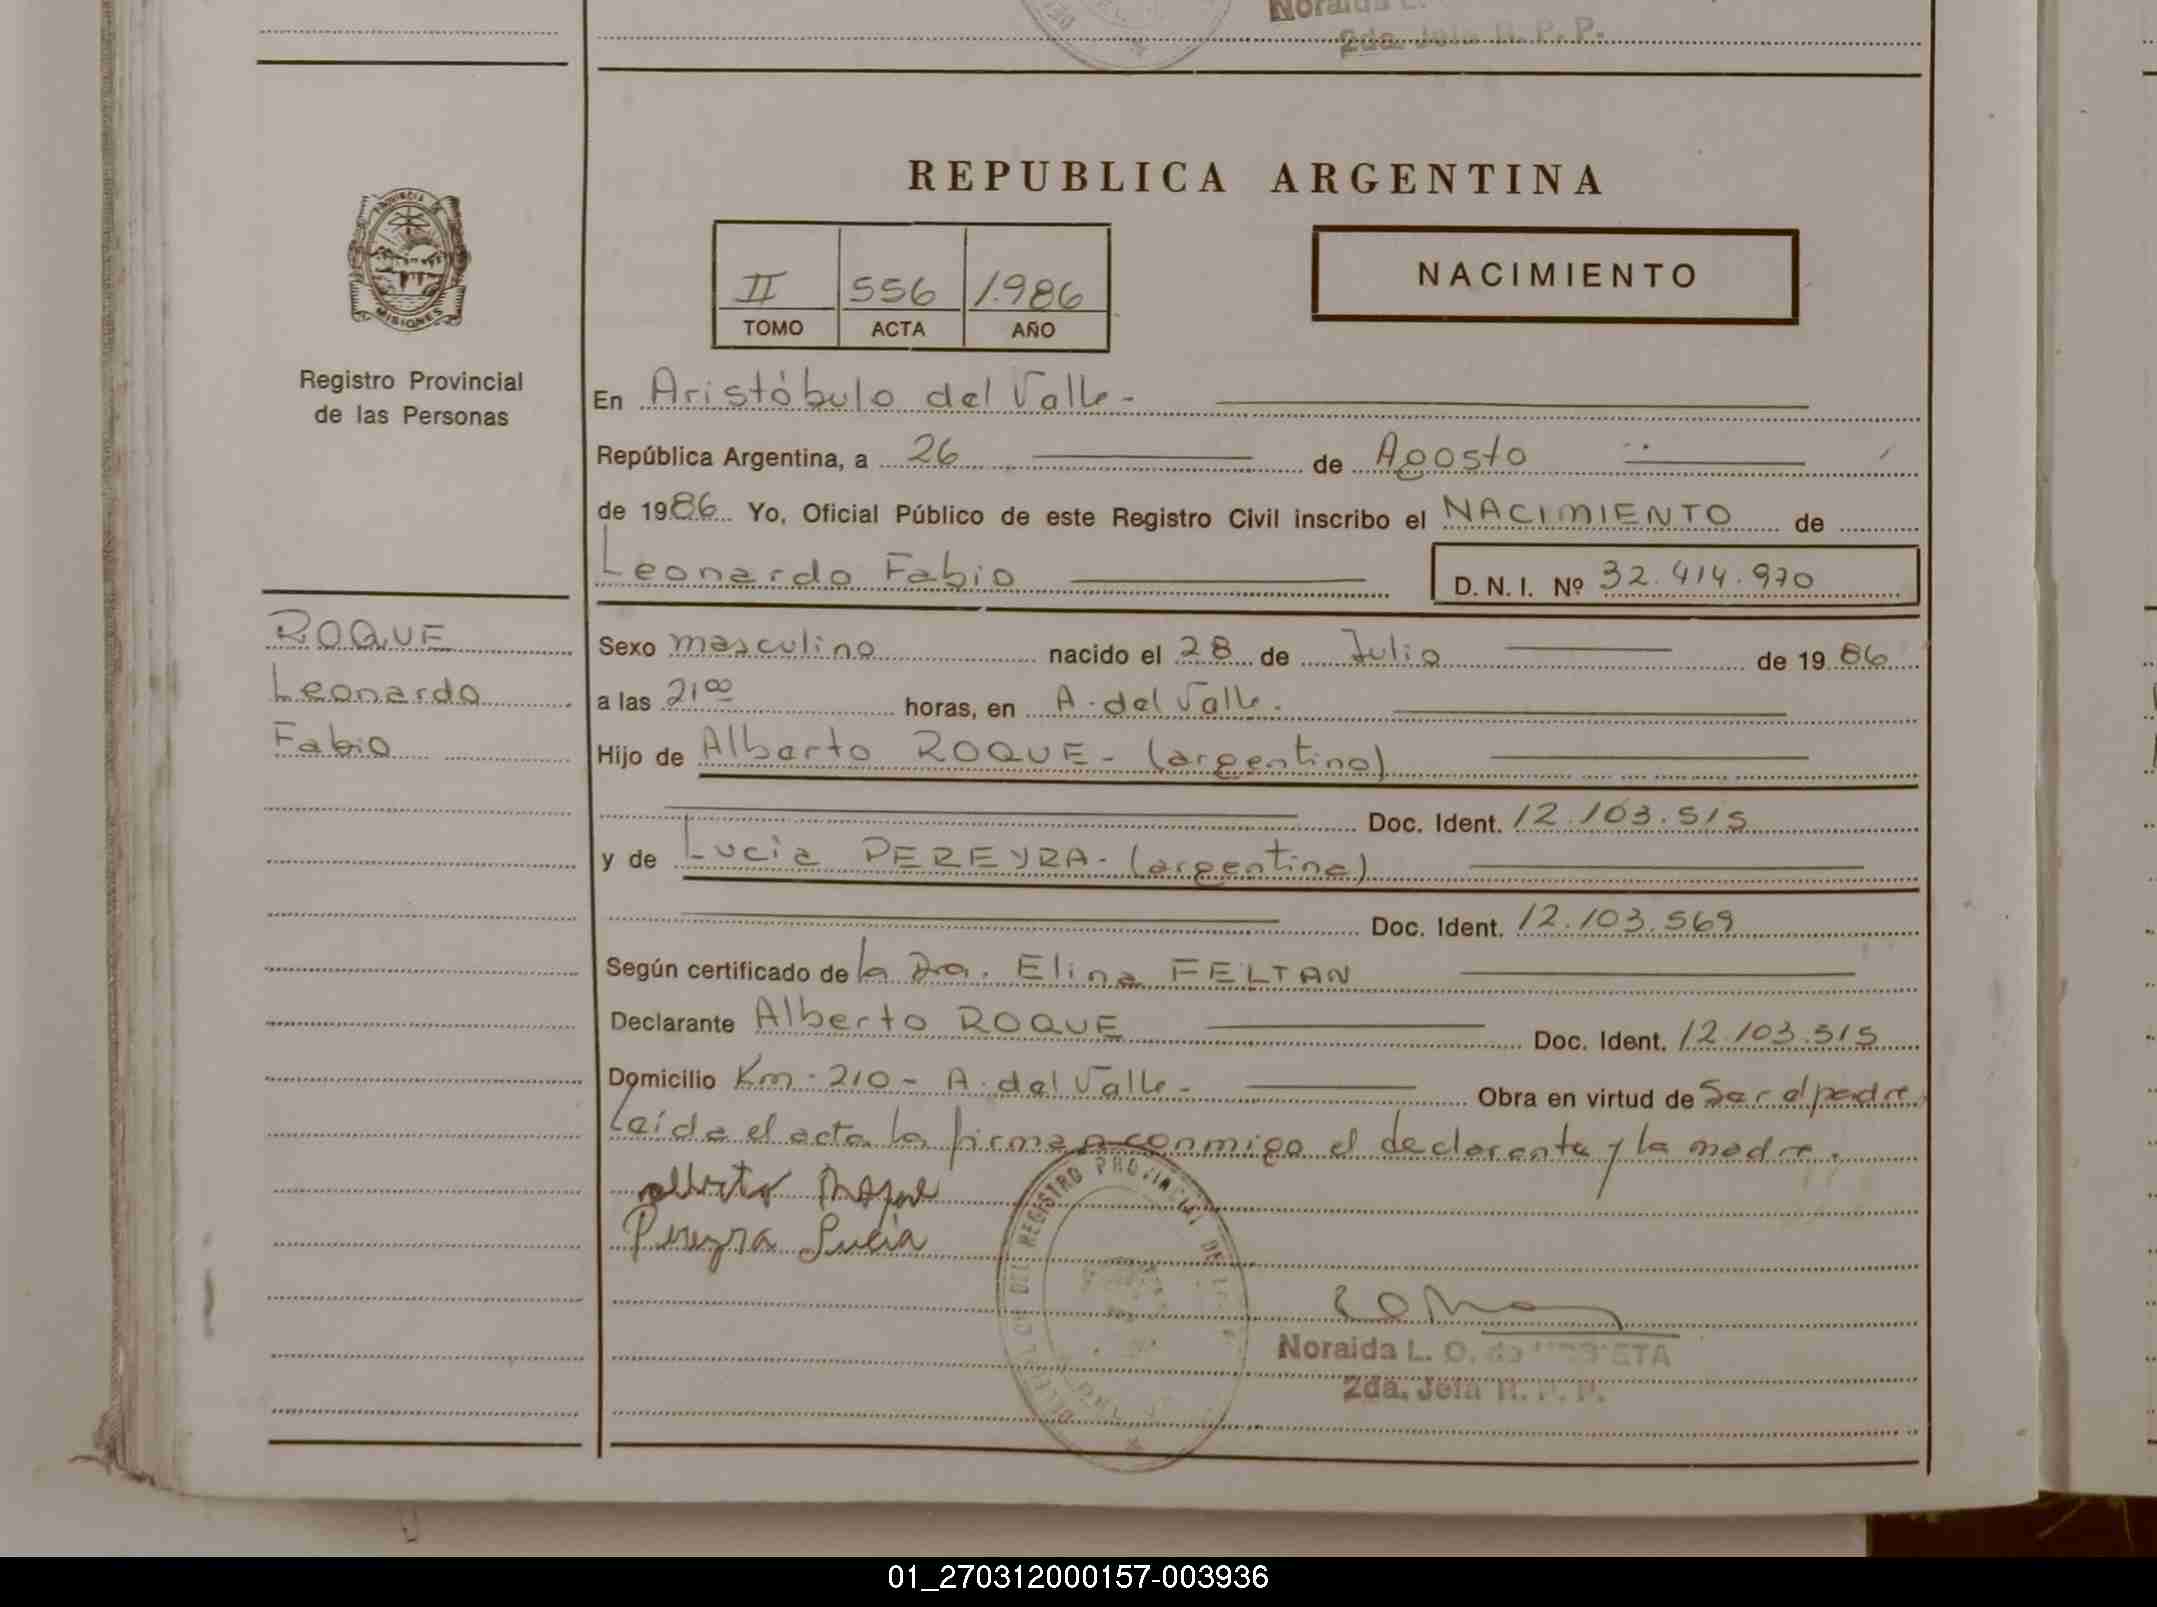 Noraida L.
2da. Jefa R. P. P.
REPUBLICA ARGENTINA
PROVINCIA DE
MISIONES
II 556 1.986
TOMO ACTA AÑO
NACIMIENTO
Registro Provincial
de las Personas
En Aristóbulo del Valle -
República Argentina, a 26 de Agosto
de 1986 Yo, Oficial Público de este Registro Civil inscribo el NACIMIENTO de
Leonardo Fabio D. N. I. Nº 32.414.970
ROQUE
Leonardo
Fabio
Sexo masculino nacido el 28 de Julio de 1986
a las 21 00 horas, en A. del Valle.
Hijo de Alberto ROQUE - (argentino)
Doc. Ident. 12.103.515
y de Lucia PEREYRA - (argentina)
Doc. Ident. 12.103.569
Según certificado de la Dra. Elina FELTAN
Declarante Alberto ROQUE Doc. Ident. 12.103.515
Domicilio Km - 210 - A. del Valle - Obra en virtud de Ser el padre
Leída el acta la firman conmigo el declarante y la madre.
Alberto Roque
Pereyra Lucía
REGISTRO PROVINCIAL DE
Noraida L. O. de
2da. Jefa R. P. P.
01_270312000157-003936